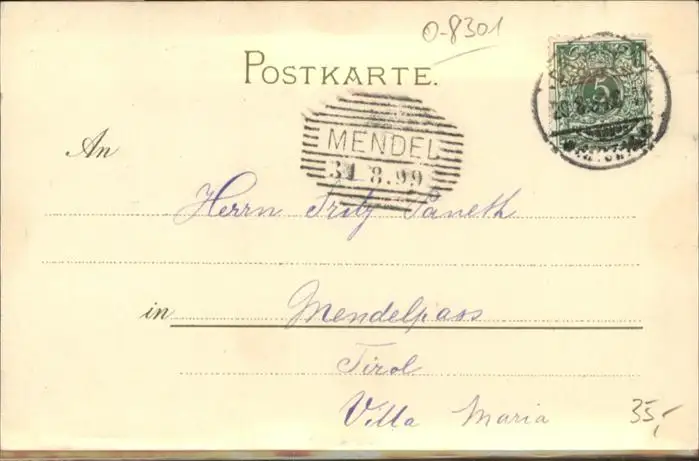 0-8301
POSTKARTE.
5
MENDEL
31 8.99
An
Herrn Fritz Paneth
in Mendelpass
Tirol
Villa Maria
35,-